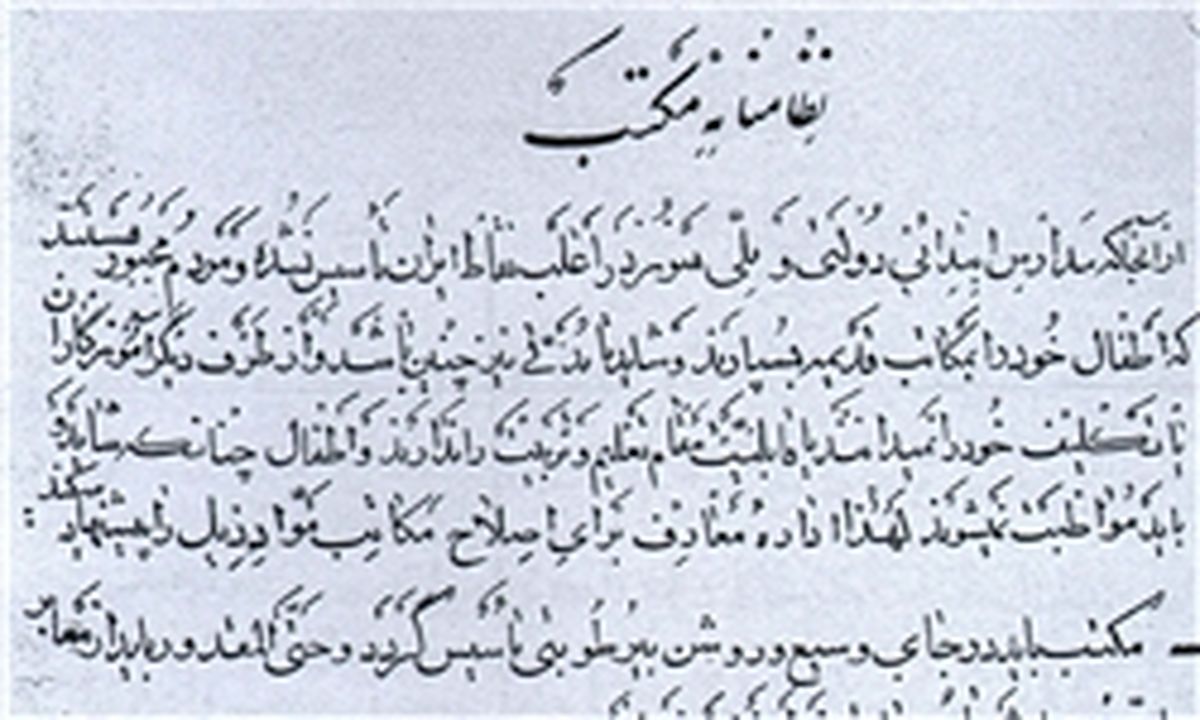 نظامنامه مکتب
ازآنجاکه مدارس ابتدائی دولتی و ملی هنوز در اغلب نقاط ایران تأسیس نشده و مردم مجبور هستند
که اطفال خود را بمکاتب قدیمه بسپارند و شاید تا مدتی نیز چنین باشد و از طرف دیگر آموزگاران
یا تکلیف خود را نمیدانند یا قابلیت مقام تعلیم و تربیت را ندارند و اطفال چنانکه شاید و
باید مواظبت نمیشوند لهذا اداره معارف برای اصلاح مکاتب مواد ذیل را پیشنهاد میکند:
– مکتب باید در جای وسیع و روشن بیرطوبتی تأسیس گردد و حتی المقدور باید از معابر